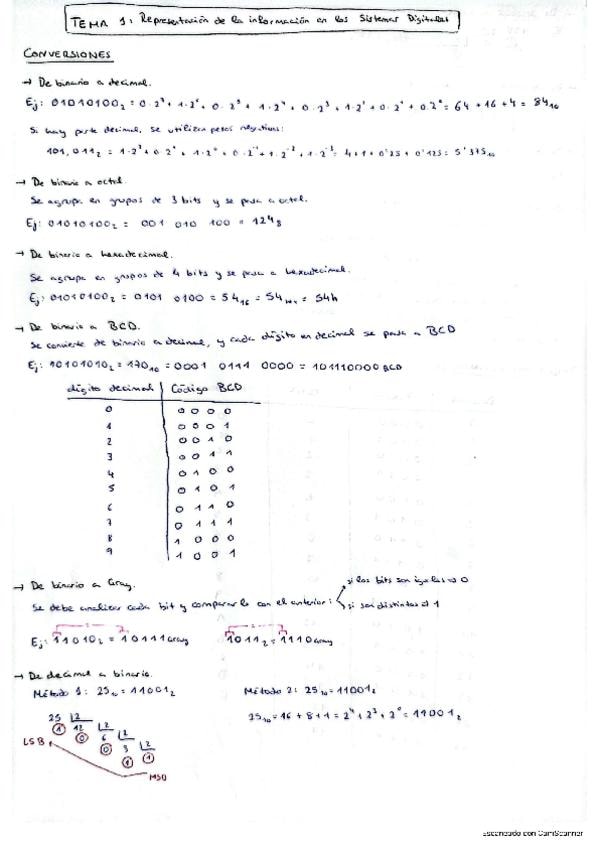 TEMA 1: Representación de la información en los Sistemas Digitales
CONVERSIONES
→ De binario a decimal.
Ej: 01010100₂ = 0·2⁷ + 1·2⁶ + 0·2⁵ + 1·2⁴ + 0·2³ + 1·2² + 0·2¹ + 0·2⁰ = 64 + 16 + 4 = 84₁₀
Si hay parte decimal, se utilizan pesos negativos:
101,011₂ = 1·2² + 0·2¹ + 1·2⁰ + 0·2⁻¹ + 1·2⁻² + 1·2⁻³ = 4 + 1 + 0'25 + 0'125 = 5'375₁₀
→ De binario a octal.
Se agrupa en grupos de 3 bits y se pasa a octal.
Ej: 01010100₂ = 001 010 100 = 124₈
→ De binario a hexadecimal.
Se agrupa en grupos de 4 bits y se pasa a hexadecimal.
Ej: 01010100₂ = 0101 0100 = 54₁₆ = 54 = 54h
→ De binario a BCD.
Se convierte de binario a decimal, y cada dígito en decimal se pasa a BCD
Ej: 10101010₂ = 170₁₀ = 0001 0111 0000 = 101110000 BCD
dígito decimal | Código BCD
0 0 0 0 0
1 0 0 0 1
2 0 0 1 0
3 0 0 1 1
4 0 1 0 0
5 0 1 0 1
6 0 1 1 0
7 0 1 1 1
8 1 0 0 0
9 1 0 0 1
→ De binario a Gray.
si los bits son iguales → 0
Se debe analizar cada bit y compararlo con el anterior:
si son distintos → 1
Ej: 11010₂ = 10111 Gray 1011₂ = 1110 Gray
→ De decimal a binario.
Método 1: 25₁₀ = 11001₂ Método 2: 25₁₀ = 11001₂
25₁₀ = 16 + 8 + 1 = 2⁴ + 2³ + 2⁰ = 11001₂
25 |2
1 12 |2
0 6 |2
0 3 |2
1 1
LSB
MSB
Escaneado con CamScanner